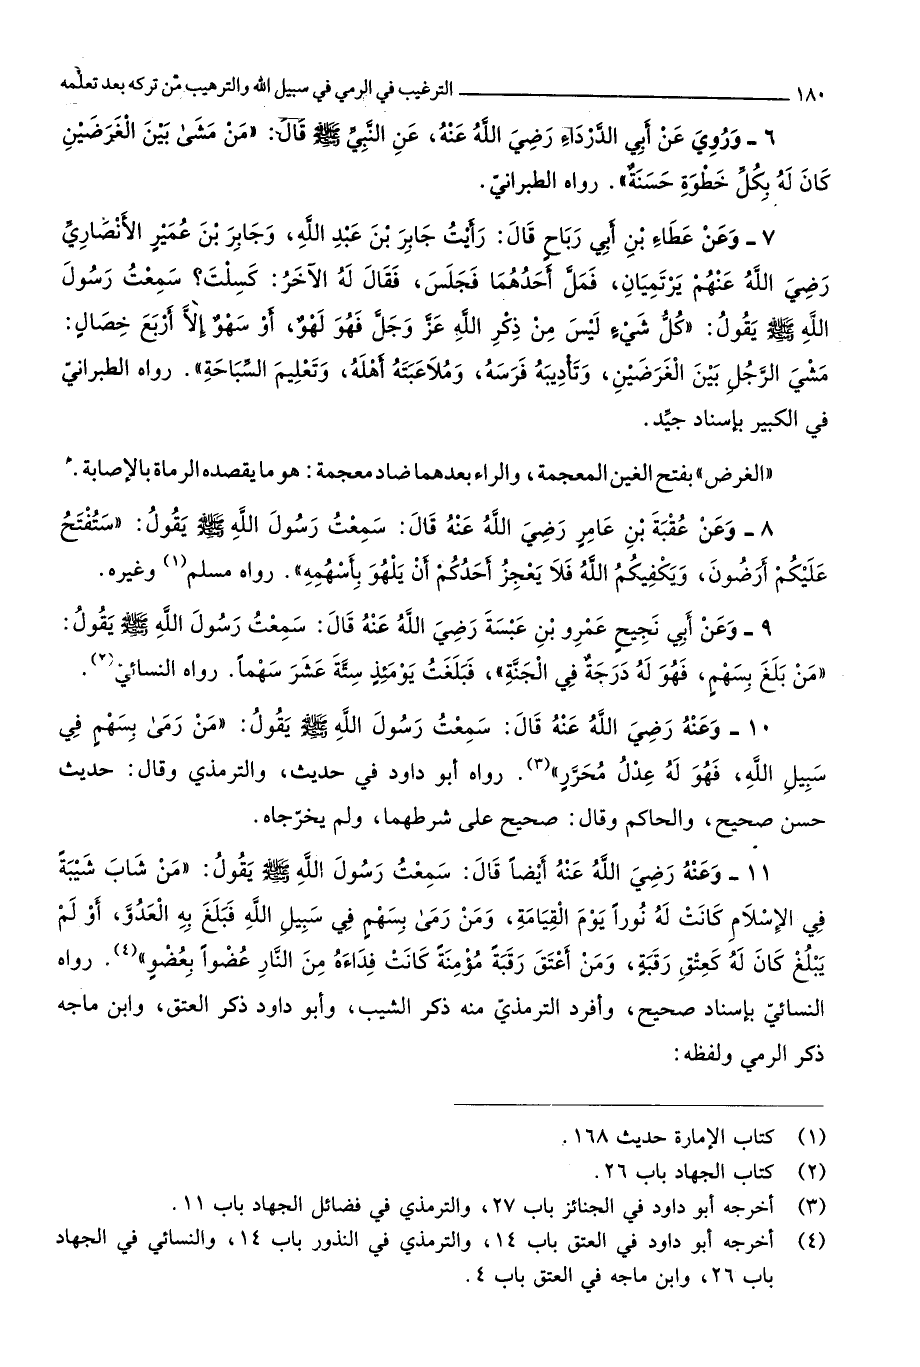 ١٨٠ ــــــــــــــــ الترغيب في الرمي في سبيل الله والترهيب مّن تركه بعد تعلّمه
٦ ـ وَرُوِيَ عَنْ أَبِي الدَّرْدَاءِ رَضِيَ اللَّهُ عَنْهُ، عَنِ النَّبِيِّ ﷺ قَالَ: «مَنْ مَشَىٰ بَيْنَ الْغَرَضَيْنِ
كَانَ لَهُ بِكُلِّ خَطْوَةٍ حَسَنَةٌ». رواه الطبرانيّ.
٧ ـ وَعَنْ عَطَاءِ بْنِ أَبِي رَبَاحٍ قَالَ: رَأَيْتُ جَابِرَ بْنَ عَبْدِ اللَّهِ، وَجَابِرَ بْنَ عُمَيْرٍ الأَنْصَارِيِّ
رَضِيَ اللَّهُ عَنْهُمْ يَرْتَمِيَانِ، فَمَلَّ أَحَدُهُمَا فَجَلَسَ، فَقَالَ لَهُ الآخَرُ: كَسِلْتَ؟ سَمِعْتُ رَسُولَ
اللَّهِ ﷺ يَقُولُ: «كُلُّ شَيْءٍ لَيْسَ مِنْ ذِكْرِ اللَّهِ عَزَّ وَجَلَّ فَهُوَ لَهْوٌ، أَوْ سَهْوٌ إِلاَّ أَرْبَعَ خِصَالٍ:
مَشْيَ الرَّجُلِ بَيْنَ الْغَرَضَيْنِ، وَتَأْدِيبَهُ فَرَسَهُ، وَمُلاَعَبَتَهُ أَهْلَهُ، وَتَعْلِيمَ السِّبَاحَةِ». رواه الطبرانيّ
في الكبير بإسناد جيِّد.
«الغرض» بفتح الغين المعجمة، والراء بعدهما ضاد معجمة: هو ما يقصده الرماة بالإصابة.
٨ ـ وَعَنْ عُقْبَةَ بْنِ عَامِرٍ رَضِيَ اللَّهُ عَنْهُ قَالَ: سَمِعْتُ رَسُولَ اللَّهِ ﷺ يَقُولُ: «سَتُفْتَحُ
عَلَيْكُمْ أَرَضُونَ، وَيَكْفِيكُمُ اللَّهُ فَلاَ يَعْجِزُ أَحَدُكُمْ أَنْ يَلْهُوَ بِأَسْهُمِهِ». رواه مسلم(١) وغيره.
٩ ـ وَعَنْ أَبِي نَجِيحٍ عَمْرِو بْنِ عَبْسَةَ رَضِيَ اللَّهُ عَنْهُ قَالَ: سَمِعْتُ رَسُولَ اللَّهِ ﷺ يَقُولُ:
«مَنْ بَلَغَ بِسَهْمٍ، فَهُوَ لَهُ دَرَجَةٌ فِي الْجَنَّةِ»، فَبَلَغْتُ يَوْمَئِذٍ سِتَّةَ عَشَرَ سَهْماً. رواه النسائيّ(٢).
١٠ ـ وَعَنْهُ رَضِيَ اللَّهُ عَنْهُ قَالَ: سَمِعْتُ رَسُولَ اللَّهِ ﷺ يَقُولُ: «مَنْ رَمَىٰ بِسَهْمٍ فِي
سَبِيلِ اللَّهِ، فَهُوَ لَهُ عِدْلُ مُحَرَّرٍ»(٣). رواه أبو داود في حديث، والترمذي وقال: حديث
حسن صحيح، والحاكم وقال: صحيح على شرطهما، ولم يخرّجاه.
١١ ـ وَعَنْهُ رَضِيَ اللَّهُ عَنْهُ أَيْضاً قَالَ: سَمِعْتُ رَسُولَ اللَّهِ ﷺ يَقُولُ: «مَنْ شَابَ شَيْبَةً
فِي الإِسْلاَمِ كَانَتْ لَهُ نُوراً يَوْمَ الْقِيَامَةِ، وَمَنْ رَمَىٰ بِسَهْمٍ فِي سَبِيلِ اللَّهِ فَبَلَغَ بِهِ الْعَدُوَّ، أَوْ لَمْ
يَبْلُغْ كَانَ لَهُ كَعِتْقِ رَقَبَةٍ، وَمَنْ أَعْتَقَ رَقَبَةً مُؤْمِنَةً كَانَتْ فِدَاءَهُ مِنَ النَّارِ عُضْواً بِعُضْوٍ»(٤). رواه
النسائيّ بإسناد صحيح، وأفرد الترمذيّ منه ذكر الشيب، وأبو داود ذكر العتق، وابن ماجه
ذكر الرمي ولفظه:
(١) كتاب الإمارة حديث ١٦٨.
(٢) كتاب الجهاد باب ٢٦.
(٣) أخرجه أبو داود في الجنائز باب ٢٧، والترمذي في فضائل الجهاد باب ١١.
(٤) أخرجه أبو داود في العتق باب ١٤، والترمذي في النذور باب ١٤، والنسائي في الجهاد
باب ٢٦، وابن ماجه في العتق باب ٤.